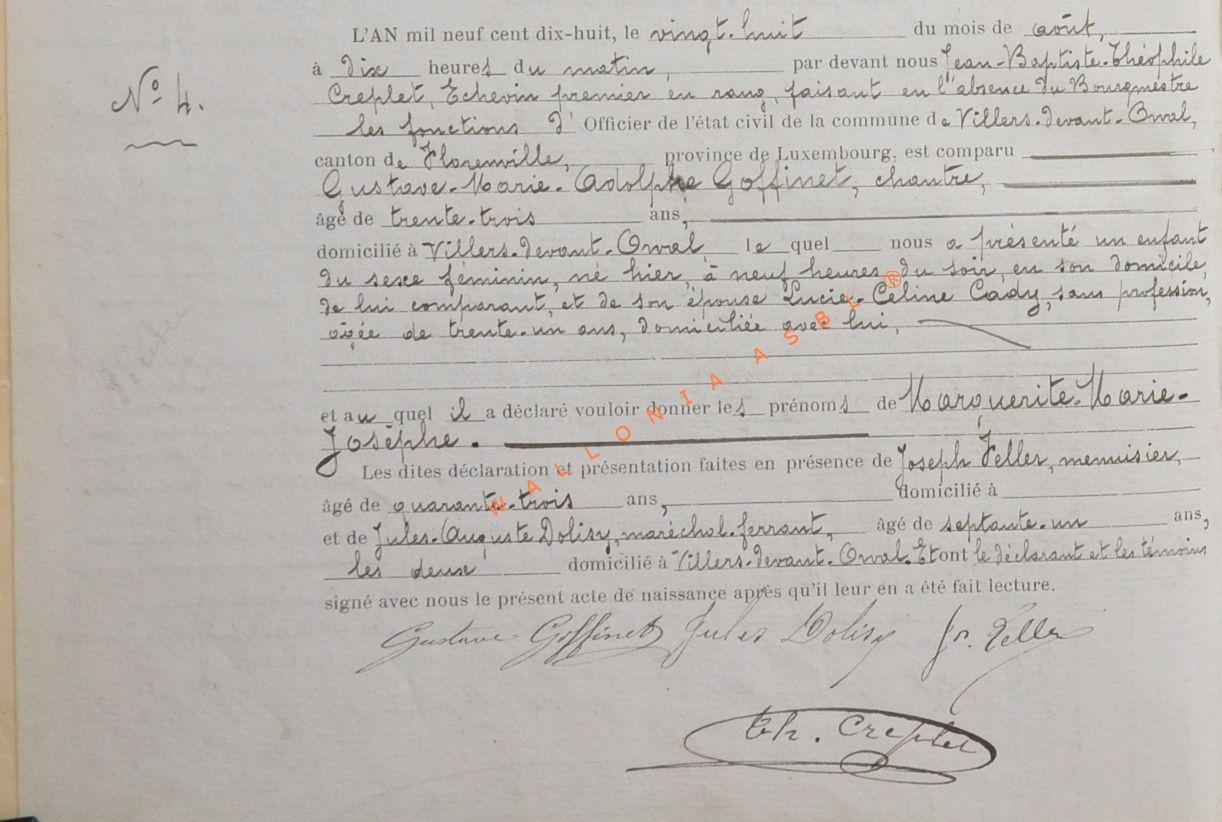 L'AN mil neuf cent dix-huit, le vingt-huit du mois de août,
à dix heures du matin, par devant nous Jean-Baptiste-Théophile
Nº 4.
Creplet, Echevin premier en rang, faisant en l'absence du Bourgmestre
les fonctions d' Officier de l'état civil de la commune de Villers-devant-Orval,
canton de Florenville, province de Luxembourg, est comparu
Gustave-Marie-Adolphe Goffinet, chantre,
âgé de trente-trois ans,
domicilié à Villers-devant-Orval, le quel nous a présenté un enfant
du sexe féminin, né hier, à neuf heures du soir, en son domicile,
de lui comparant, et de son épouse Lucie-Céline Cady, sans profession,
âgée de trente-un ans, domiciliée avec lui,
et au quel il a déclaré vouloir donner les prénoms de Marguerite-Marie-
Josèphe.
Les dites déclaration et présentation faites en présence de Joseph Feller, menuisier,
âgé de quarante-trois ans, domicilié à
et de Jules-Auguste Dolisy, maréchal-ferrant, âgé de septante-un ans,
les deux domicilié à Villers-devant-Orval. Et ont le déclarant et les témoins
signé avec nous le présent acte de naissance après qu'il leur en a été fait lecture.
Gustave Goffinet Jules Dolisy Js. Feller
Th. Creplet
WALLONIA ASBL ®